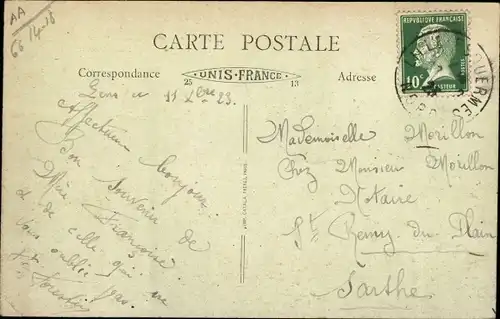 AA
66 14-18
CARTE POSTALE
Correspondance
25 UNIS-FRANCE 13
Adresse
REPUBLIQUE FRANÇAISE
10c
POSTES
PASTEUR
11 Xbre 23
Affectueux bonjour
Bon Souvenir de
Mme Françoise
et de celle qui ne
vous oublie pas.
Mademoiselle Morillon
Chez Monsieur Morillon
Notaire
St Remy du Plain
Sarthe